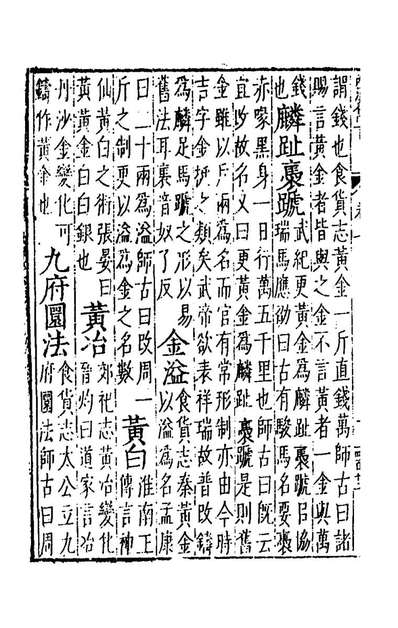 謂錢也食貨志黃金一斤直錢萬師古曰諸
賜言黃金者皆與之金不言黃者一金與萬
錢也
麟趾褭蹏
武紀更黃金爲麟趾褭蹏㠯協
瑞焉應劭曰古有駿馬名要褭
赤喙黑身一日行萬五千里也師古曰旣云
宜改故名又曰更黃金爲麟趾褭蹏是則舊
金雖以斤兩爲名而官有常形制亦由今時
吉字金挺之類矣武帝欲表祥瑞故普改鑄
爲麟足馬蹏之形以易
舊法耳褭音奴了反
金溢
食貨志秦黃金
以溢爲名孟康
曰二十兩爲溢師古曰改周一
斤之制更以溢爲金之名數
黃白
淮南王
傳言神
仙黃白之術張晏曰
黃黃金白白銀也
黃冶
郊祀志黃冶變化
晉灼曰道家言冶
丹沙金變化可
鑄作黃金也
九府圜法
食貨志太公立九
府圜法師古曰周